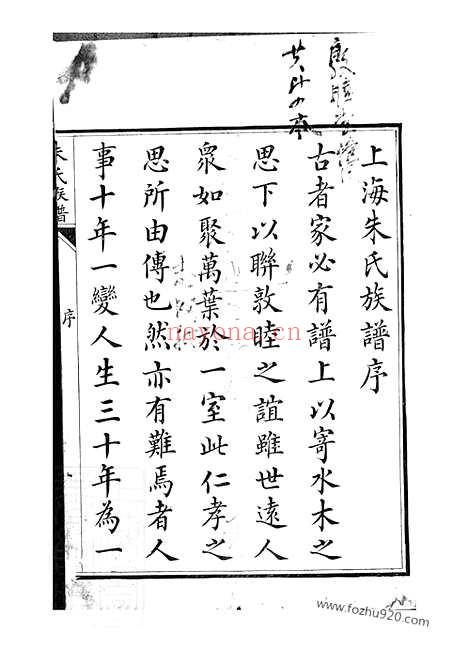 上海朱氏族譜序
古者家必有譜上以寄水木之
思下以聯敦睦之誼雖世遠人
衆如聚萬葉於一室此仁孝之
思所由傳也然亦有難焉者人
事十年一變人生三十年為一
朱氏族譜
序
nayona.cn
www.fozhu920.com